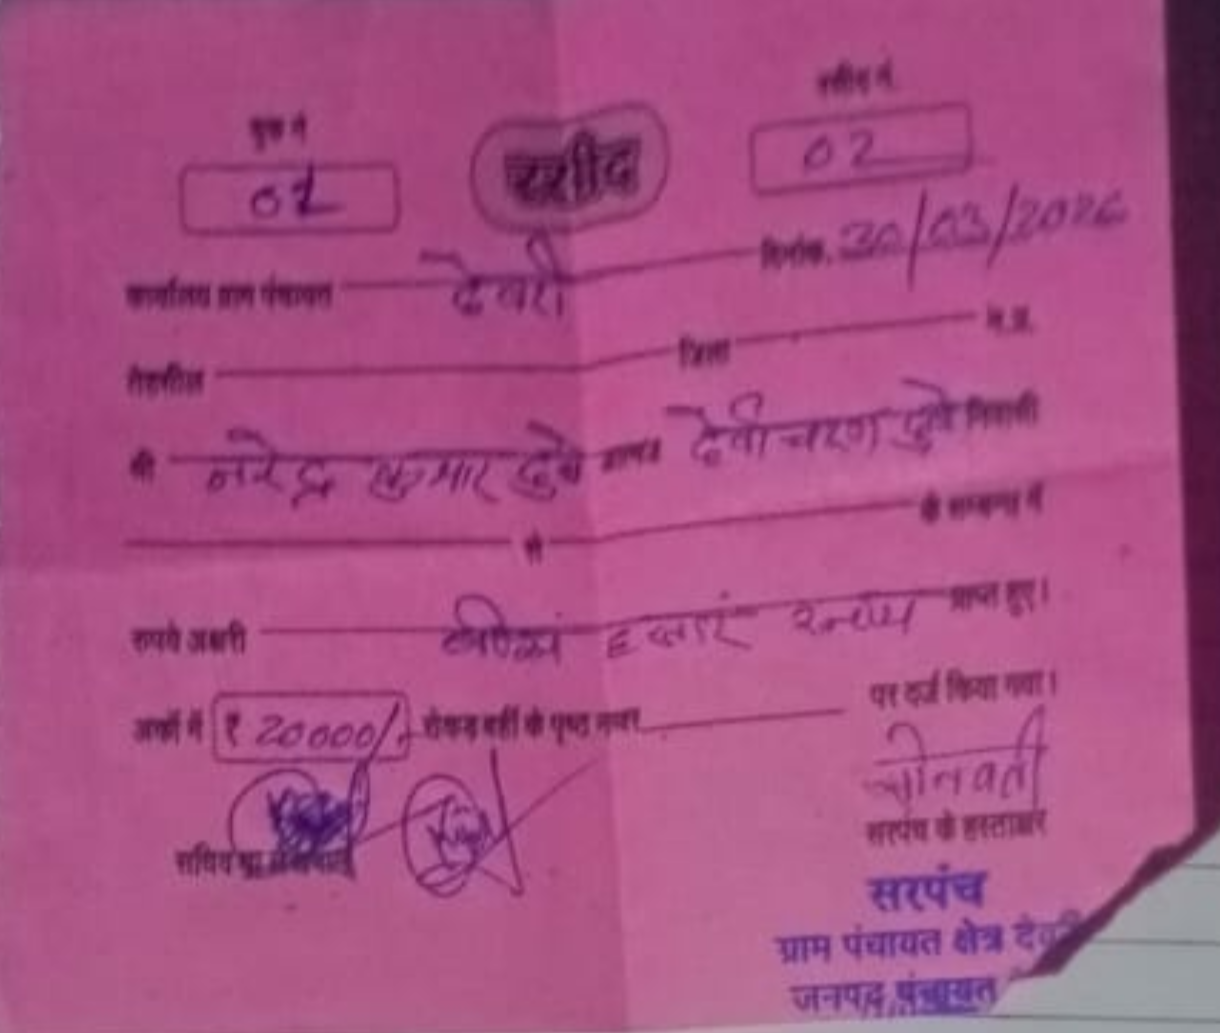 बुक नं रसीद नं.
01 रसीद 02
कार्यालय ग्राम पंचायत देवरी दिनांक. 30/03/2026
तहसील जिला म.प्र.
श्री नरेन्द्र कुमार दुबे आत्मज देवीचरण दुबे निवासी
से के सम्बन्ध में
रुपये अक्षरी हजार प्राप्त हुए।
अंकों में ₹ 20000/- रोकड़ बही के पृष्ठ नम्बर पर दर्ज किया गया।
सचिव
सरपंच के हस्ताक्षर
सरपंच
ग्राम पंचायत क्षेत्र
जनपद पंचायत